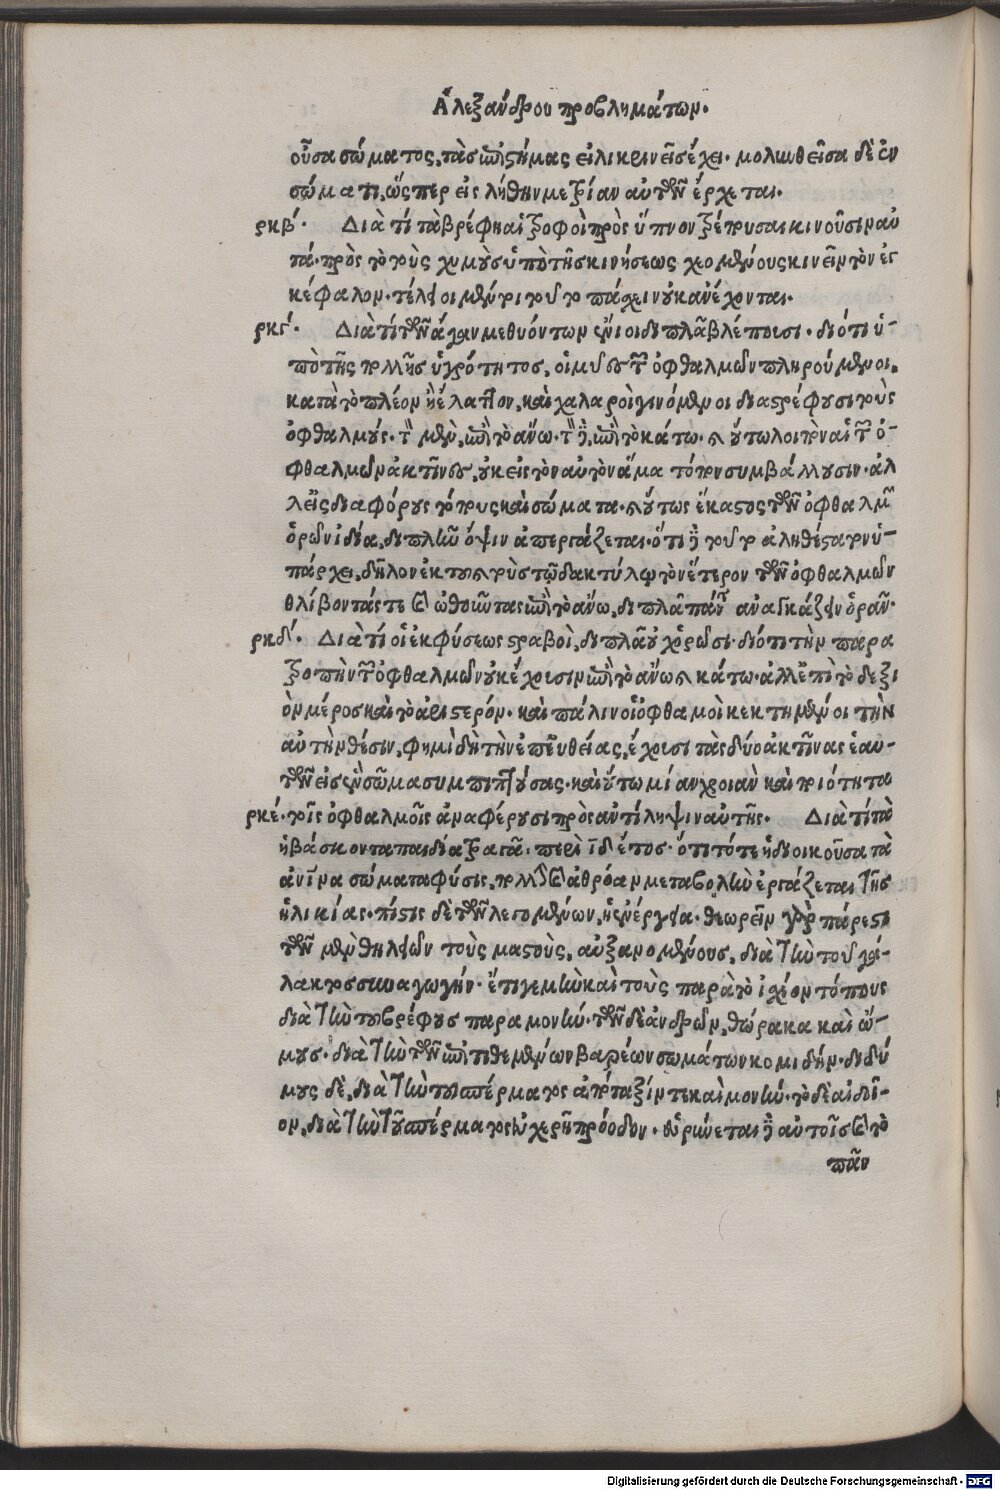 Ἀλεξάνδρου προβλημάτων.
οὖσα σώματος, τὰς ἐπιστήμας εἰλικρινεῖς ἔχει. μολωθεῖσα δὲ ἐν
σώματι, ὥσπερ εἰς λήθην μετρίαν αὐτῶν ἔρχεται.
ρκβ΄. Διὰ τί τὰ βρέφη αἱ τροφοὶ πρὸς ὕπνον τρέπουσαι κινοῦσιν αὐ
τά. πρὸς τὸ τοὺς χυμοὺς ὑπὸ τῆς κινήσεως χεομένους κινεῖν τὸν ἐγ
κέφαλον. τέλειοι μέντοι τοῦτο πάσχειν οὐκ ἀνέχονται.
ρκγ΄. Διὰ τί τῶν ἄγαν μεθυόντων ἔνιοι διπλᾶ βλέπουσι. διότι ὑ-
πὸ τῆς πολλῆς ὑγρότητος, οἱ μύες τῶν ὀφθαλμῶν πληρούμενοι,
κατὰ τὸ πλέον ἢ ἔλαττον, καὶ χαλαροὶ γινόμενοι διαστρέφουσι τοὺς
ὀφθαλμούς. τὸν μὲν, ἐπὶ τὸ ἄνω. τὸν δὲ, ἐπὶ τὸ κάτω. οὕτω λοιπὸν αἱ τῶν ὀ-
φθαλμῶν ἀκτῖνες, οὐκ εἰς τὸν αὐτὸν ἅμα τόπον συμβάλλουσιν. ἀλ
λ' εἰς διαφόρους τόπους καὶ σώματα. οὕτως ἕκαστος τῶν ὀφθαλμῶν
ὁρῶν ἰδία, διπλῆν ὄψιν ἀπεργάζεται. ὅτι δὲ τοῦτο ἀληθέστατον ὑ-
πάρχει, δῆλον ἐκ τοῦ τοὺς τῷ δακτύλῳ τὸν ἕτερον τῶν ὀφθαλμῶν
θλίβοντάς τε καὶ ὠθοῦντας ἐπὶ τὸ ἄνω, διπλᾶ πάντα ἀναγκάζειν ὁρᾶν.
ρκδ΄. Διὰ τί οἱ ἐκ φύσεως στραβοὶ, διπλᾶ οὐχ ὁρῶσι. διότι τὴν παρα
τροπὴν τῶν ὀφθαλμῶν οὐκ ἔχουσιν ἐπὶ τὸ ἄνω κάτω. ἀλλ' ἐπὶ τὸ δεξι
ὸν μέρος καὶ τὸ ἀριστερόν. καὶ πάλιν οἱ ὀφθαμοὶ κεκτημένοι τὴν
αὐτὴν θέσιν, φημὶ δὴ τὴν ἐπ' εὐθείας, ἔχουσι τὰς δύο ἀκτῖνας ἑαυ-
τῶν εἰς ἓν σῶμα συμπιπτούσας. καὶ οὕτω μίαν χροιὰν καὶ ποιότητα
ρκέ. τοῖς ὀφθαλμοῖς ἀναφέρουσι πρὸς ἀντίληψιν αὐτῆς. Διὰ τί τὰ
ἡβάσκοντα παιδία τραγᾶ. περὶ ιδ ἔτος. ὅτι τότε ἡ διοικοῦσα τὰ
ἀνῖνα σώματα φύσις, πολλὴν καὶ ἀθρόαν μεταβολὴν ἐργάζεται τῆς
ἡλικίας. πίστις δὲ τῶν λεγομένων, ἡ ἐνέργεια. θεωρεῖν γὰρ πάρεστι
τῶν μὲν θηλειῶν τοὺς μαστοὺς, αὐξανομένους, διὰ τὴν τοῦ γά-
λακτος συναγωγήν. ἔτι γε μὴν καὶ τοὺς παρὰ τὸ ἰσχίον τόπους
διὰ τὴν τοῦ βρέφους παραμονήν. τῶν δὲ ἀνδρῶν, θώρακα καὶ ὤ-
μους. διὰ τὴν τῶν ἐπιτιθεμένων βαρέων σωμάτων κομιδήν. διδύ
μους δὲ, διὰ τὴν τοῦ σπέρματος ἀπόταξίν τε καὶ μονήν. τὸ δὲ αἰδοῖ-
ον, διὰ τὴν τοῦ σπέρματος εὐχερῆ πρόοδον. εὑρύνεται δὲ αὐτοῖς καὶ τὸ
πᾶν
Digitalisierung gefördert durch die Deutsche Forschungsgemeinschaft - DFG